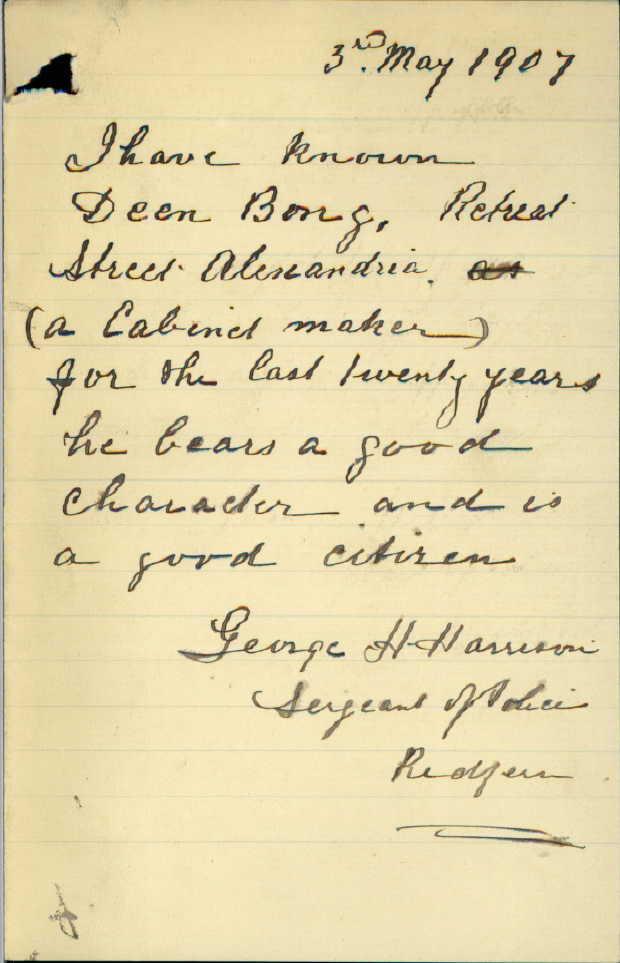 3rd. May 1907
I have known
Deen Bong, Retreat
Street Alexandria. as
(a Cabinet maker)
for the last twenty years
he bears a good
character and is
a good citizen
George H Harrison
Sergeant of Police
Redfern